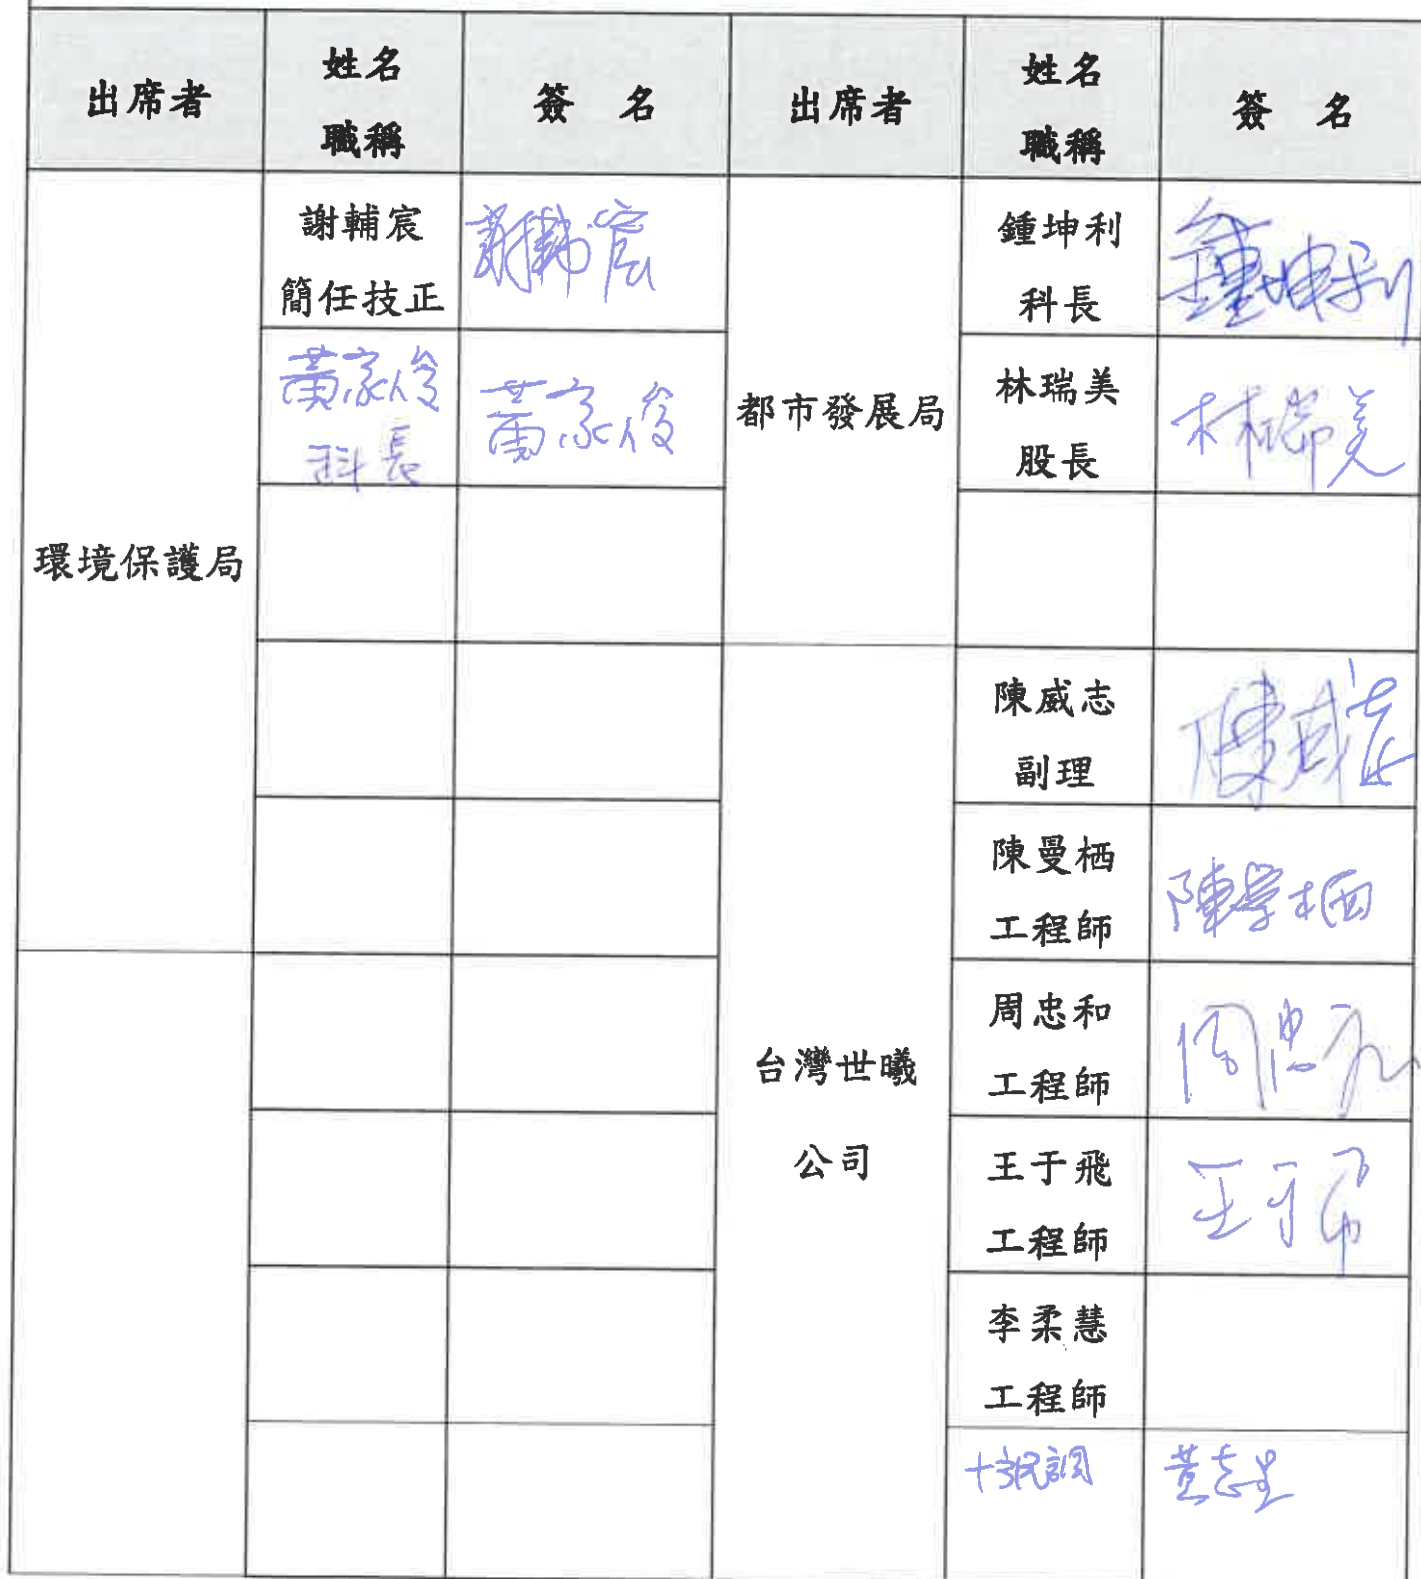 出席者 姓名 職稱 簽 名 出席者 姓名 職稱 簽 名
環境保護局
謝輔宸
簡任技正
謝輔宸
黃家俊
科長
黃家俊
都市發展局
鍾坤利
科長
鍾坤利
林瑞美
股長
林瑞美
台灣世曦
公司
陳威志
副理
陳威志
陳曼栖
工程師
陳曼栖
周忠和
工程師
周忠和
王于飛
工程師
王于飛
李柔慧
工程師